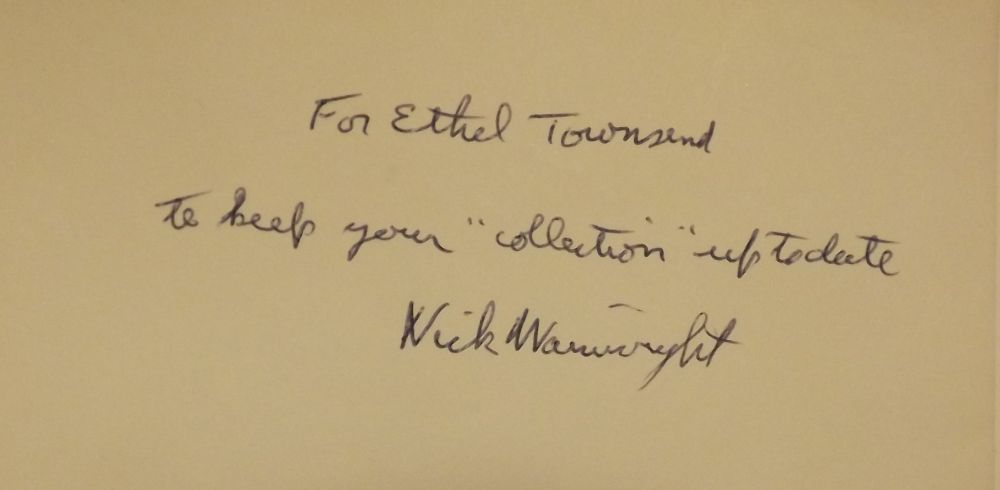 For Ethel Townsend
to keep your "collection" up to date
Nick Wainwright